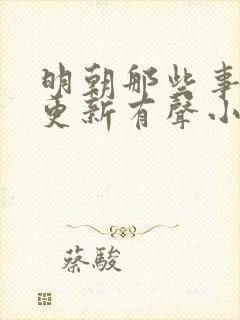 明朝那些事
更新有聲小
蔡駿